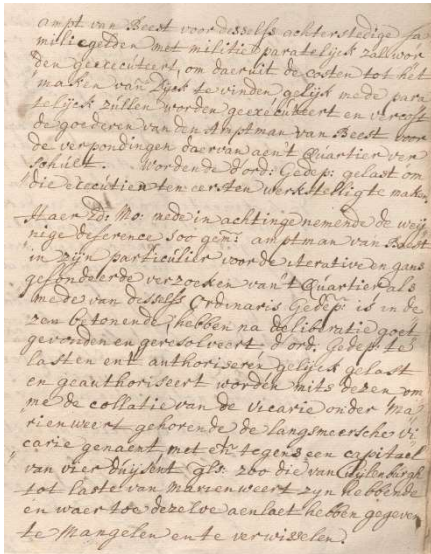 ampt van Beest voor desselfs achterstedige fa
miliegelden met militie paratelijck zall wor
den geexecuteert, om daeruit de costen tot het
maken van dyck te vinden gelijk mede para
telijck zullen worden geexecuteert en vercoft
de goederen van den Amptman van Beest voor
de verpondingen daervan aen't Quartier ver
schult. Wordende d'ord: Gedep: gelast om
die executien ten eersten werkstelligh te maken
Haer Ed: Mo: mede in achtinge nemende de wey
nige deference soo gem: amptman van Beest
in zijn particulier voor de iterative en gans
gefondeerde verzoeken van't Quartier als
mede van desselfs Ordinaris Gedep: is in de
zen betonende, hebben na deliberatie goet
gevonden en geresolveert d'ord: Gedep: te
lasten ende authoriseren gelijck gelast
en geauthoriseert worden mits dezen om
me de collatie van de vicarie onder Ma
rienweert gehorende de langsmeersche vi
carie genaent met tegens een capitael
van vier duijsent gls: zoo die van Cuijlenburgh
tot laste van Marienweert zyn hebbende
en waertoe dezelve aenlaet hebben gegeven
te Mangelen en te verwisselen.